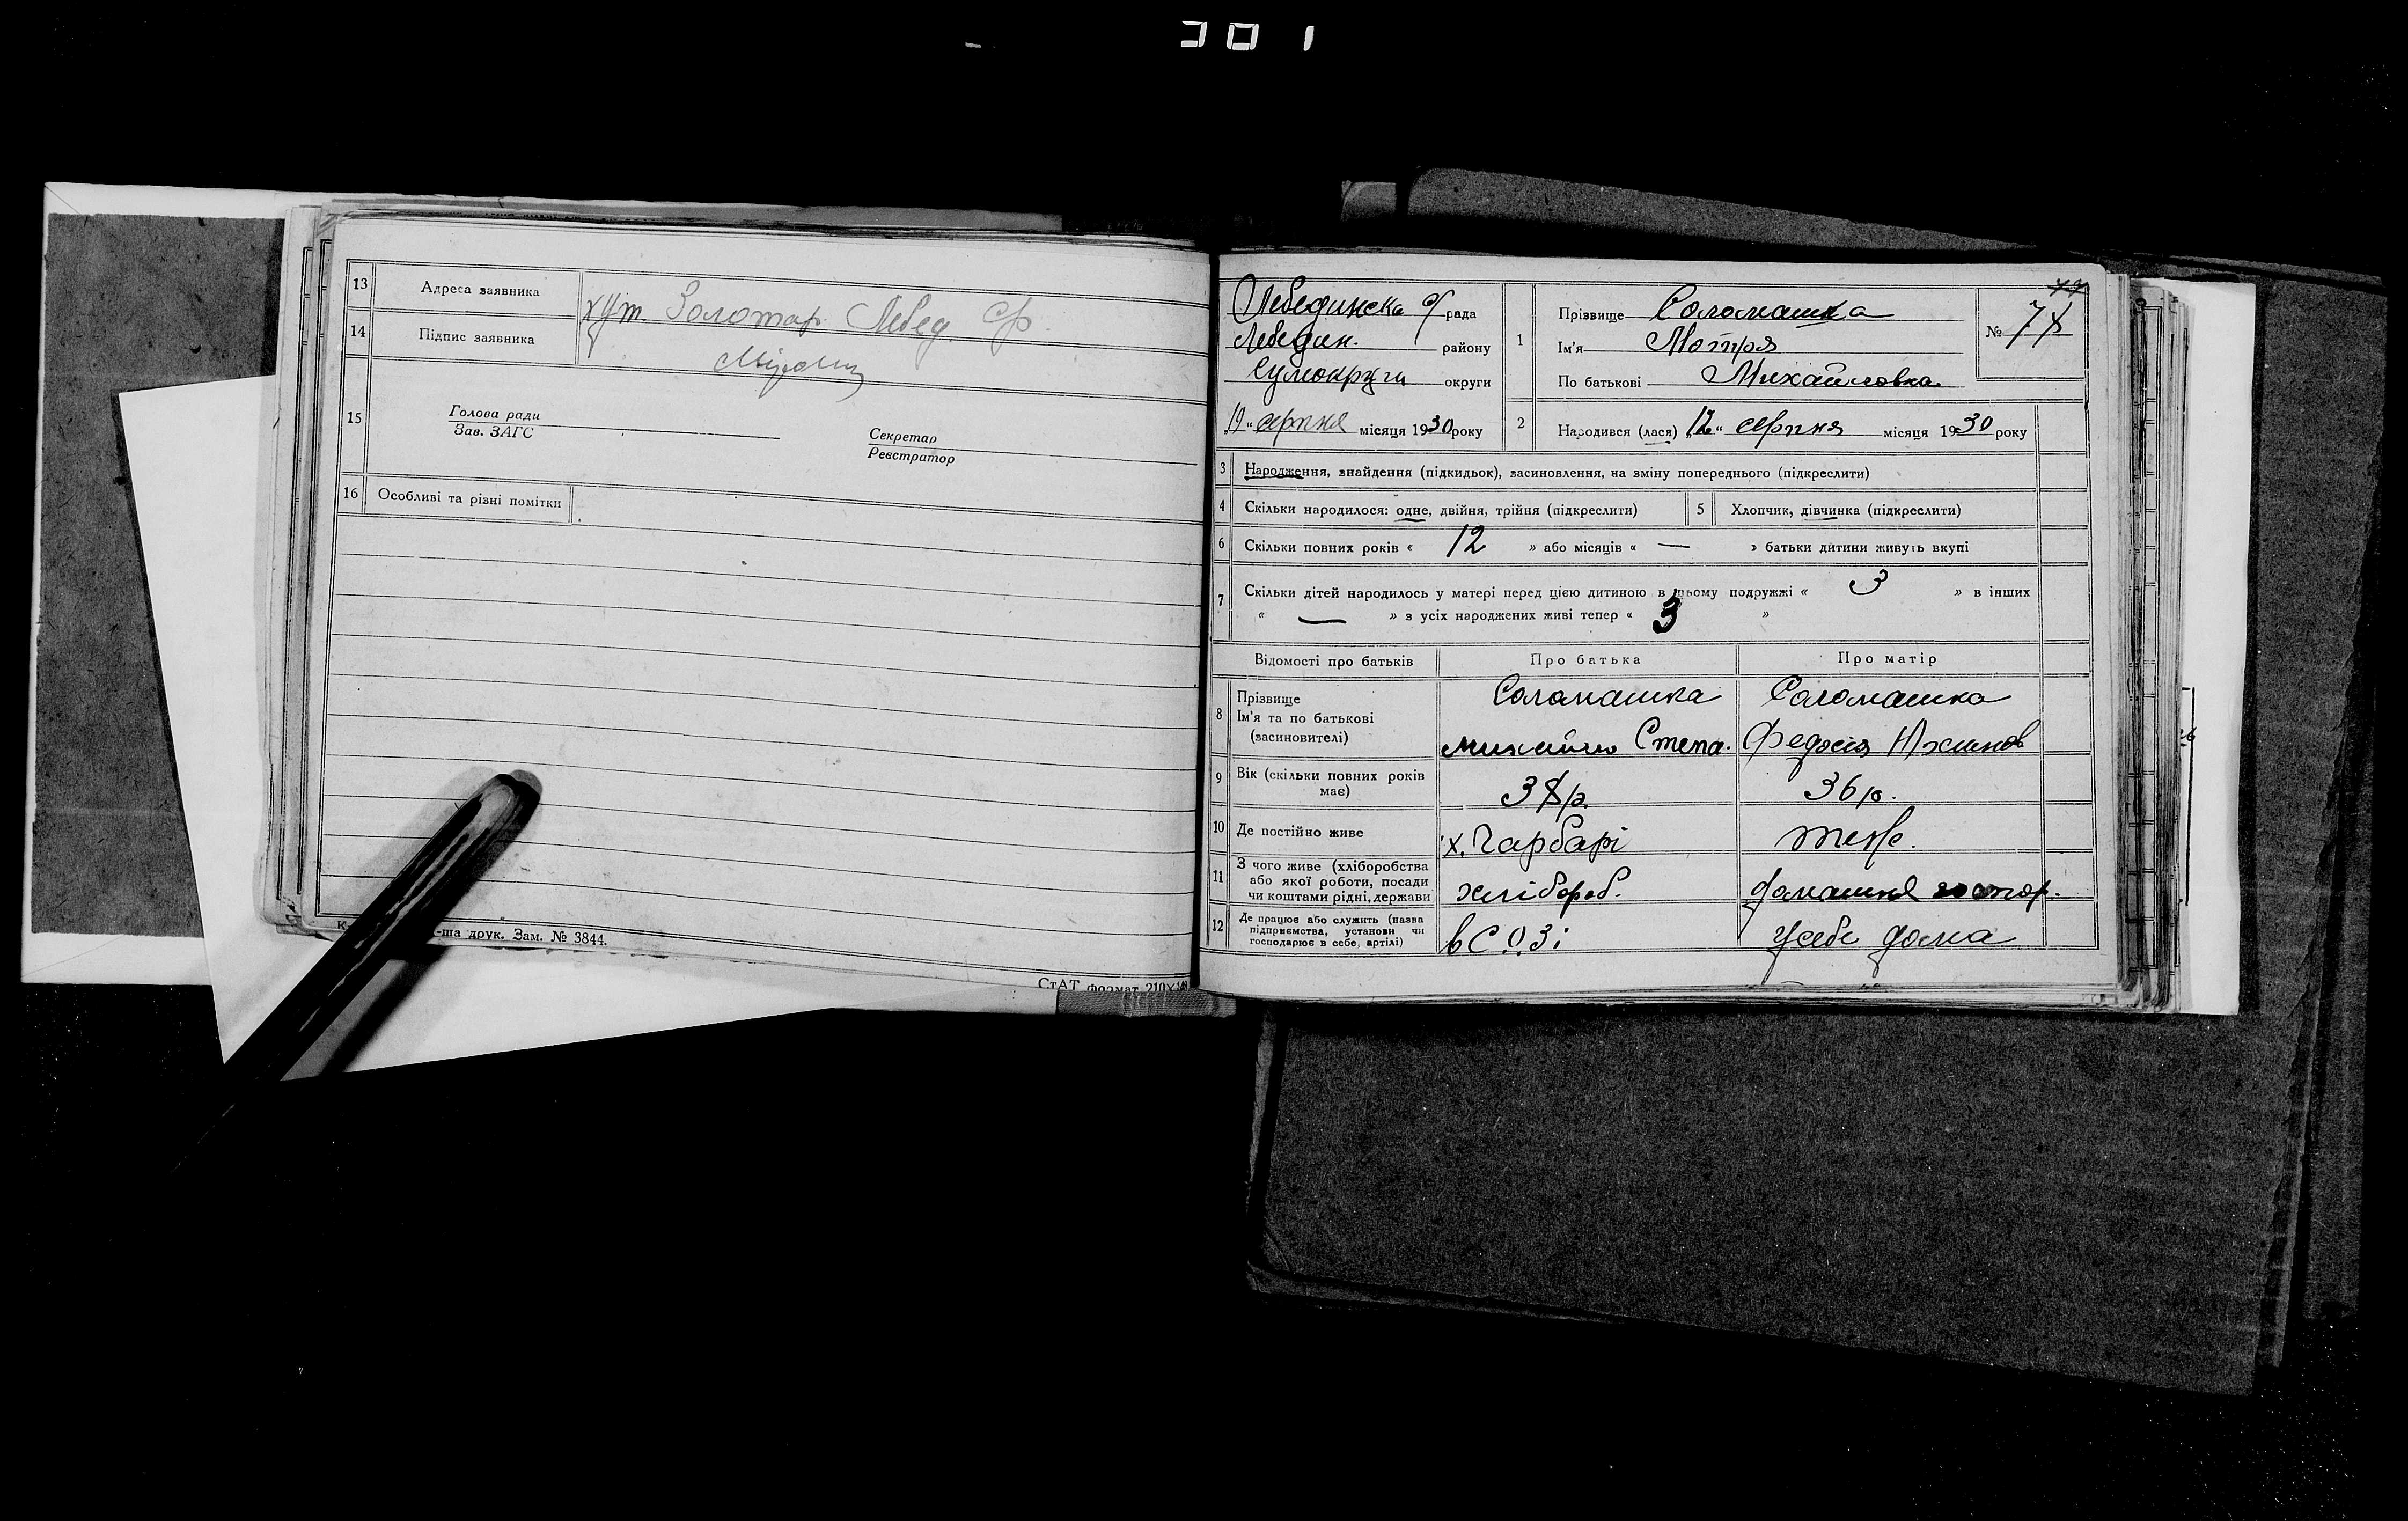 301
13 Адреса заявника хут. Золотар. Лебед. Ср.
14 Підпис заявника
15 Голова ради
Зав. ЗАГС
Секретар
Реєстратор
16 Особливі та різні помітки
-ша друк. Зам. № 3844.
СтАТ формат 210×
Лебединска с/рада
Лебедин. району
Сумокруги округи
„19“ серпня місяця 1930 року
1 Прізвище Соломашка
Ім'я Мотря
По батькові Михайловка.
№ 78
2 Народився (лася) „12“ серпня місяця 1930 року
3 Народження, знайдення (підкидьок), засиновлення, на зміну попереднього (підкреслити)
4 Скільки народилося: одне, двійня, трійня (підкреслити) 5 Хлопчик, дівчинка (підкреслити)
6 Скільки повних років « 12 » або місяців « — » батьки дитини живуть вкупі
7 Скільки дітей народилось у матері перед цією дитиною в цьому подружжі « 3 » в інших
« — » з усіх народжених живі тепер « 3 »
Відомості про батьків Про батька Про матір
8 Прізвище Соломашка Соломашка
Ім'я та по батькові
(засиновителі) Михайло Степа. Федосія
9 Вік (скільки повних років
має) 38р. 36р.
10 Де постійно живе х. Чарбарі теж.
11 З чого живе (хліборобства
або якої роботи, посади
чи коштами рідні, держави хлібороб. домашня госпор.
12 Де працює або служить (назва
підприємства, установи чи
господарює в себе, артілі) в С.О.Зі у себе дома